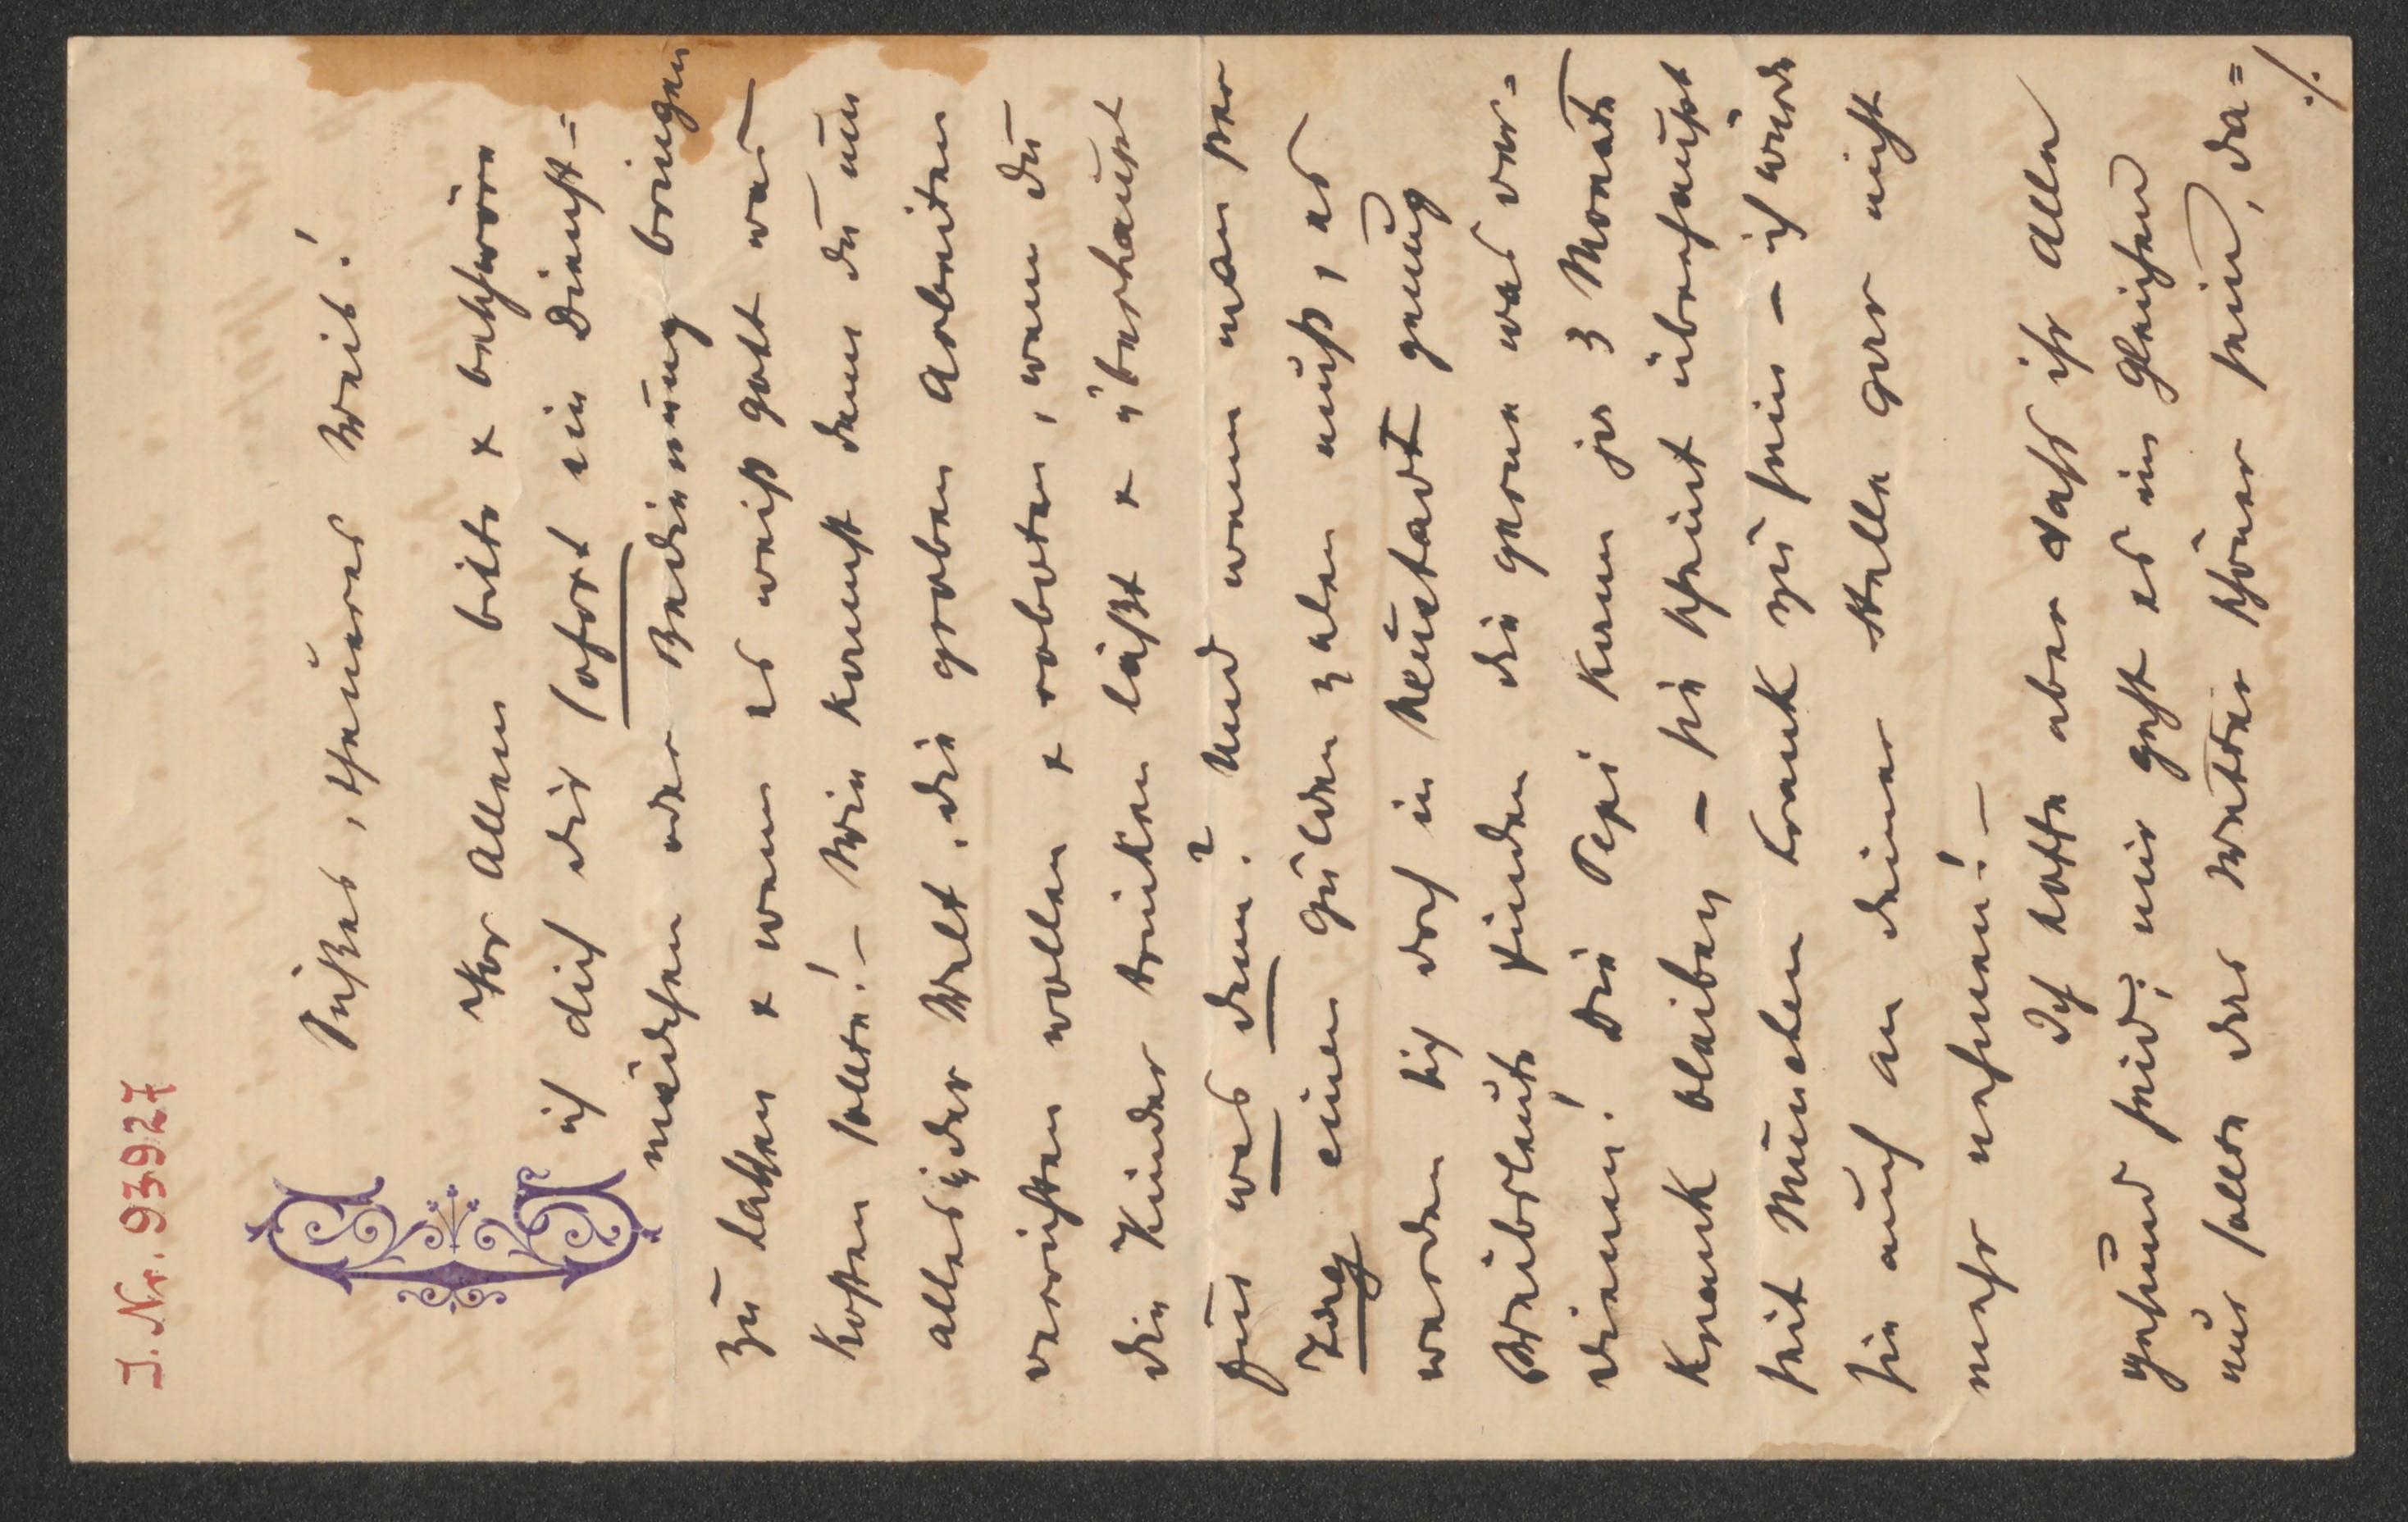 I. Nr. 93927
Süßes, theures Weib!
Vor Allem bitte & beschwöre
ich dich dir sofort ein Dienst=
mädchen oder Bedienung bringen
zu lassen & wenn es weiß Gott was
kosten sollte! – Wie kommst denn du um
alles in der Welt, die groben Arbeiten
verrichten wollen & roboten, wenn du
die Kinder trinken läßt & überhaupt
für was denn? Und wenn man per
Tag einen Gulden zalen muß, es
werden sich doch in Neustadt genug
Weibsleute finden die gerne was ver=
dienen! Die Pepi kann ja 3 Monate
krank bleiben – sie scheint überhaupt
seit München krank zu sein – ich würde
sie auch an deiner Stelle gar nicht
mehr nehmen! –
Ich hoffe aber daß ihr Alle
gesund seid; mir geht es im Gleichen
nur sollte das Wetter schöner sein, da=
./.